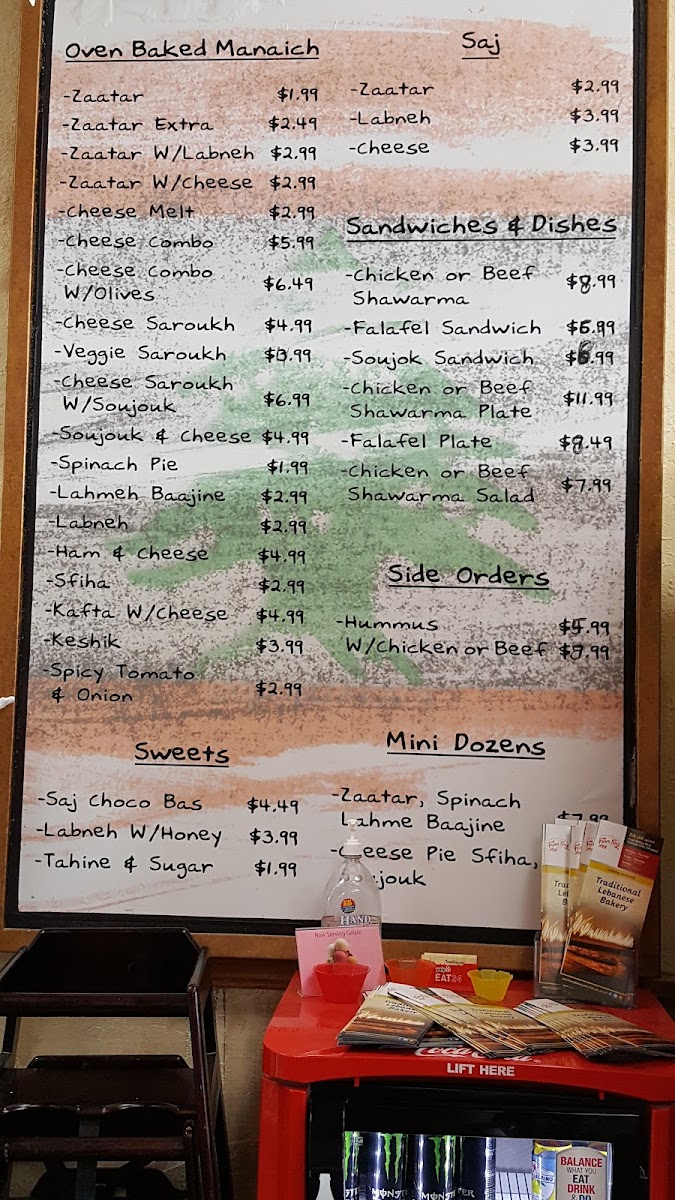 Oven Baked Manaich
-Zaatar $1.99
-Zaatar Extra $2.49
-Zaatar W/Labneh $2.99
-Zaatar W/Cheese $2.99
-Cheese Melt $2.99
-Cheese Combo $5.99
-Cheese Combo
W/Olives $6.49
-Cheese Saroukh $4.99
-Veggie Saroukh $3.99
-Cheese Saroukh
W/Soujouk $6.99
-Soujouk & Cheese $4.99
-Spinach Pie $1.99
-Lahmeh Baajine $2.99
-Labneh $2.99
-Ham & Cheese $4.99
-Sfiha $2.99
-Kafta W/Cheese $4.99
-Keshik $3.99
-Spicy Tomato
& Onion $2.99
Sweets
-Saj Choco Bas $4.49
-Labneh W/Honey $3.99
-Tahine & Sugar $1.99
Saj
-Zaatar $2.99
-Labneh $3.99
-Cheese $3.99
Sandwiches & Dishes
-Chicken or Beef
Shawarma $8.99
-Falafel Sandwich $6.99
-Soujok Sandwich
-Chicken or Beef
Shawarma Plate $11.99
-Falafel Plate $8.49
-Chicken or Beef
Shawarma Salad $7.99
Side Orders
-Hummus
W/Chicken or Beef
Mini Dozens
-Zaatar, Spinach
Lahme Baajine
-Cheese Pie Sfiha,
HAND
Now Serving Gelato
EAT24
Traditional
Lebanese
Bakery
Coca-Cola
LIFT HERE
MONSTER
BALANCE
WHAT YOU
EAT
DRINK
& DO